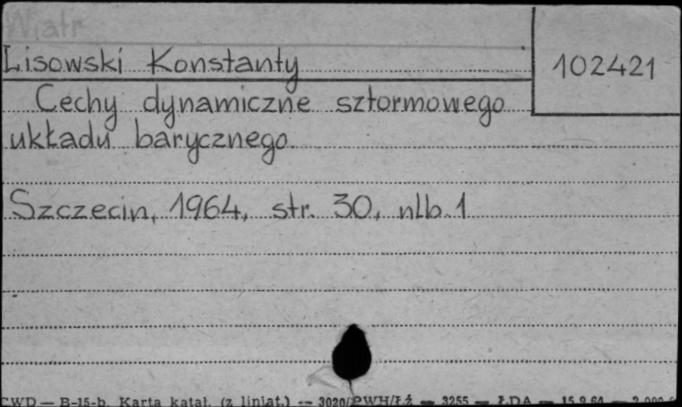 Wiatr
Lisowski Konstanty
102421
Cechy dynamiczne sztormowego
układu barycznego.
Szczecin, 1964, str. 30, nlb. 1
CWD — B-15-b. Karta katal. (z liniat.) — 3020/PWH/Łź — 3255 — ŁDA — 15.9.64 — 2.000